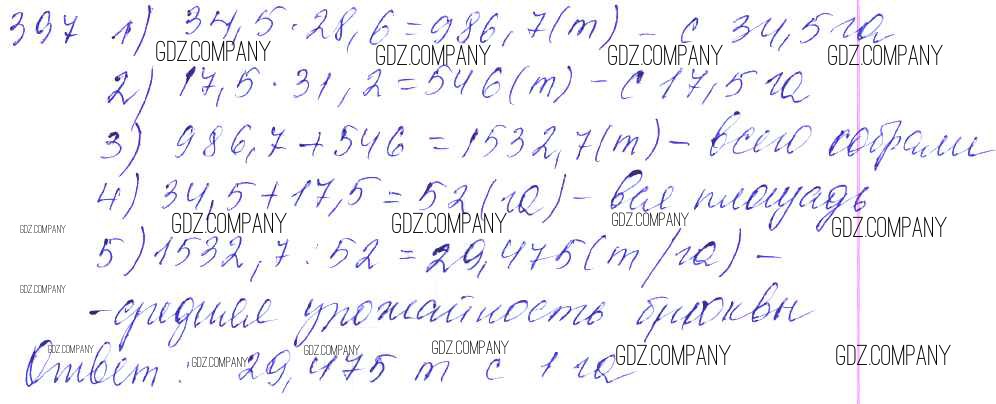 397 1) 34,5·28,6=986,7(т) - с 34,5 га
GDZ.COMPANY GDZ.COMPANY GDZ.COMPANY GDZ.COMPANY
2) 17,5·31,2=546(т) - с 17,5 га
3) 986,7+546=1532,7(т) - всего собрали
4) 34,5+17,5=52(га) - вся площадь
GDZ.COMPANY GDZ.COMPANY GDZ.COMPANY GDZ.COMPANY GDZ.COMPANY
5) 1532,7:52=29,475(т/га) -
GDZ.COMPANY
- средняя урожайность брюквы
GDZ.COMPANY GDZ.COMPANY GDZ.COMPANY GDZ.COMPANY GDZ.COMPANY GDZ.COMPANY
Ответ: 29,475 т с 1 га